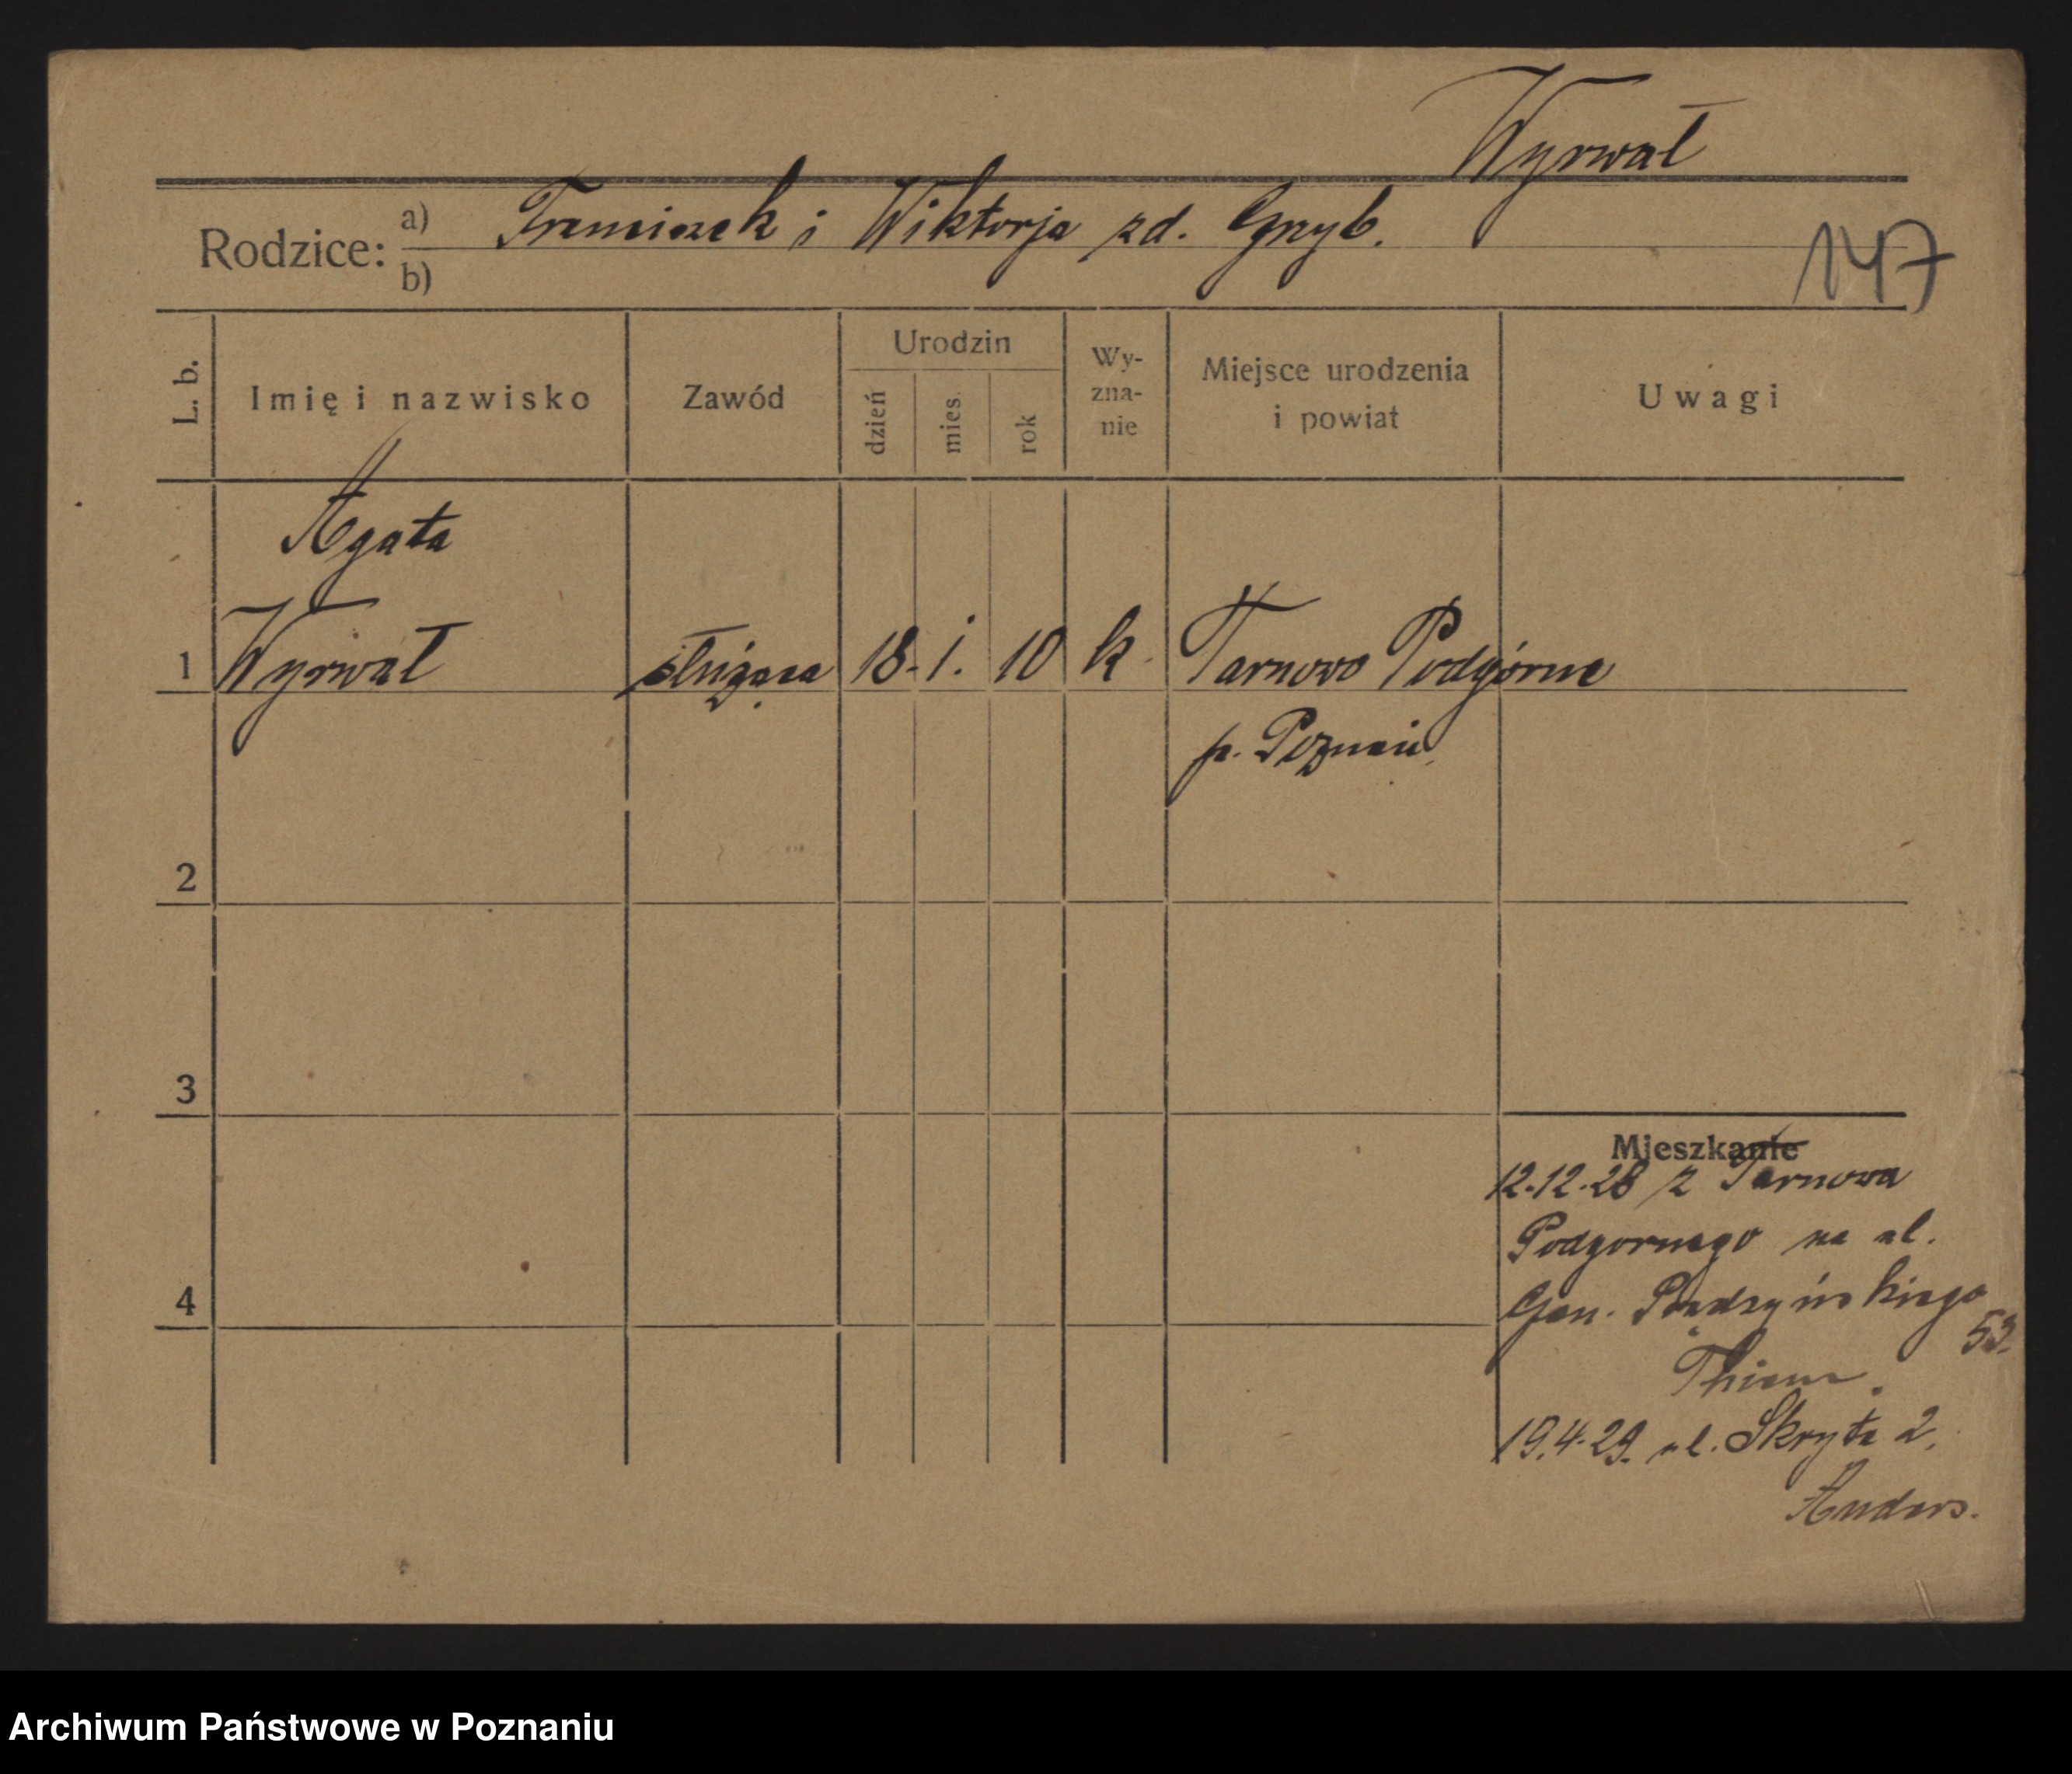 Wyrwał
Rodzice: a) Franciszek i Wiktorja zd. Gryb.
b)
147
L. b.
Imię i nazwisko
Zawód
Urodzin
dzień
mies.
rok
Wy-
zna-
nie
Miejsce urodzenia
i powiat
Uwagi
Agata
1 Wyrwał służąca 18. i. 10 k Tarnowo Podgórne
p. Poznań
2
3
4
Mieszkanie
12.12.28 z Tarnowa
Podgornego na ul.
Gen. Prądzyńskiego
53.
19.4.29. ul. Skryta 2.
Anders.
Archiwum Państwowe w Poznaniu